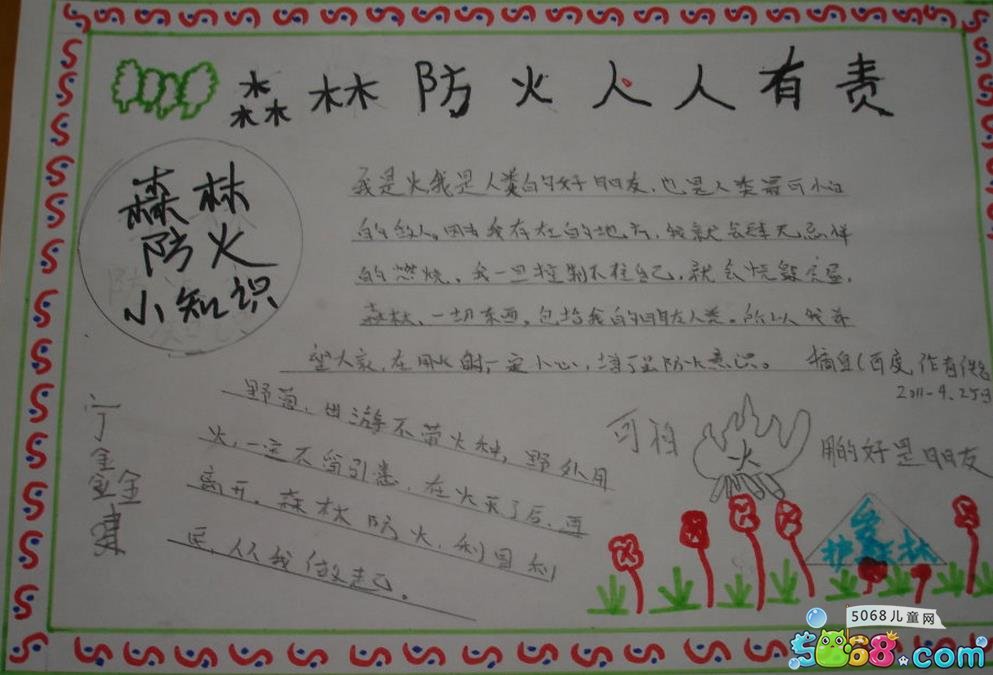 森林防火人人有责
森林
防火
小知识
我是火我是人类的好朋友,也是人类最可怕
的敌人。因为我存在的地方,我就会肆无忌惮
的燃烧,我一旦控制不住自己,就会烧毁
森林,一切东西,包括我的朋友人类。所以我希
望大家,在用火时一定小心,增了强防火意识。
摘自(百度,作者
2011-4.25日
野营,出游不带火种,野外用
火,一定不留引患,在火灭了后,再
离开。森林防火,利国利
民,从我做起。
宁鑫鑫
火
用的好是朋友
爱
护森林
5068儿童网
5068.com